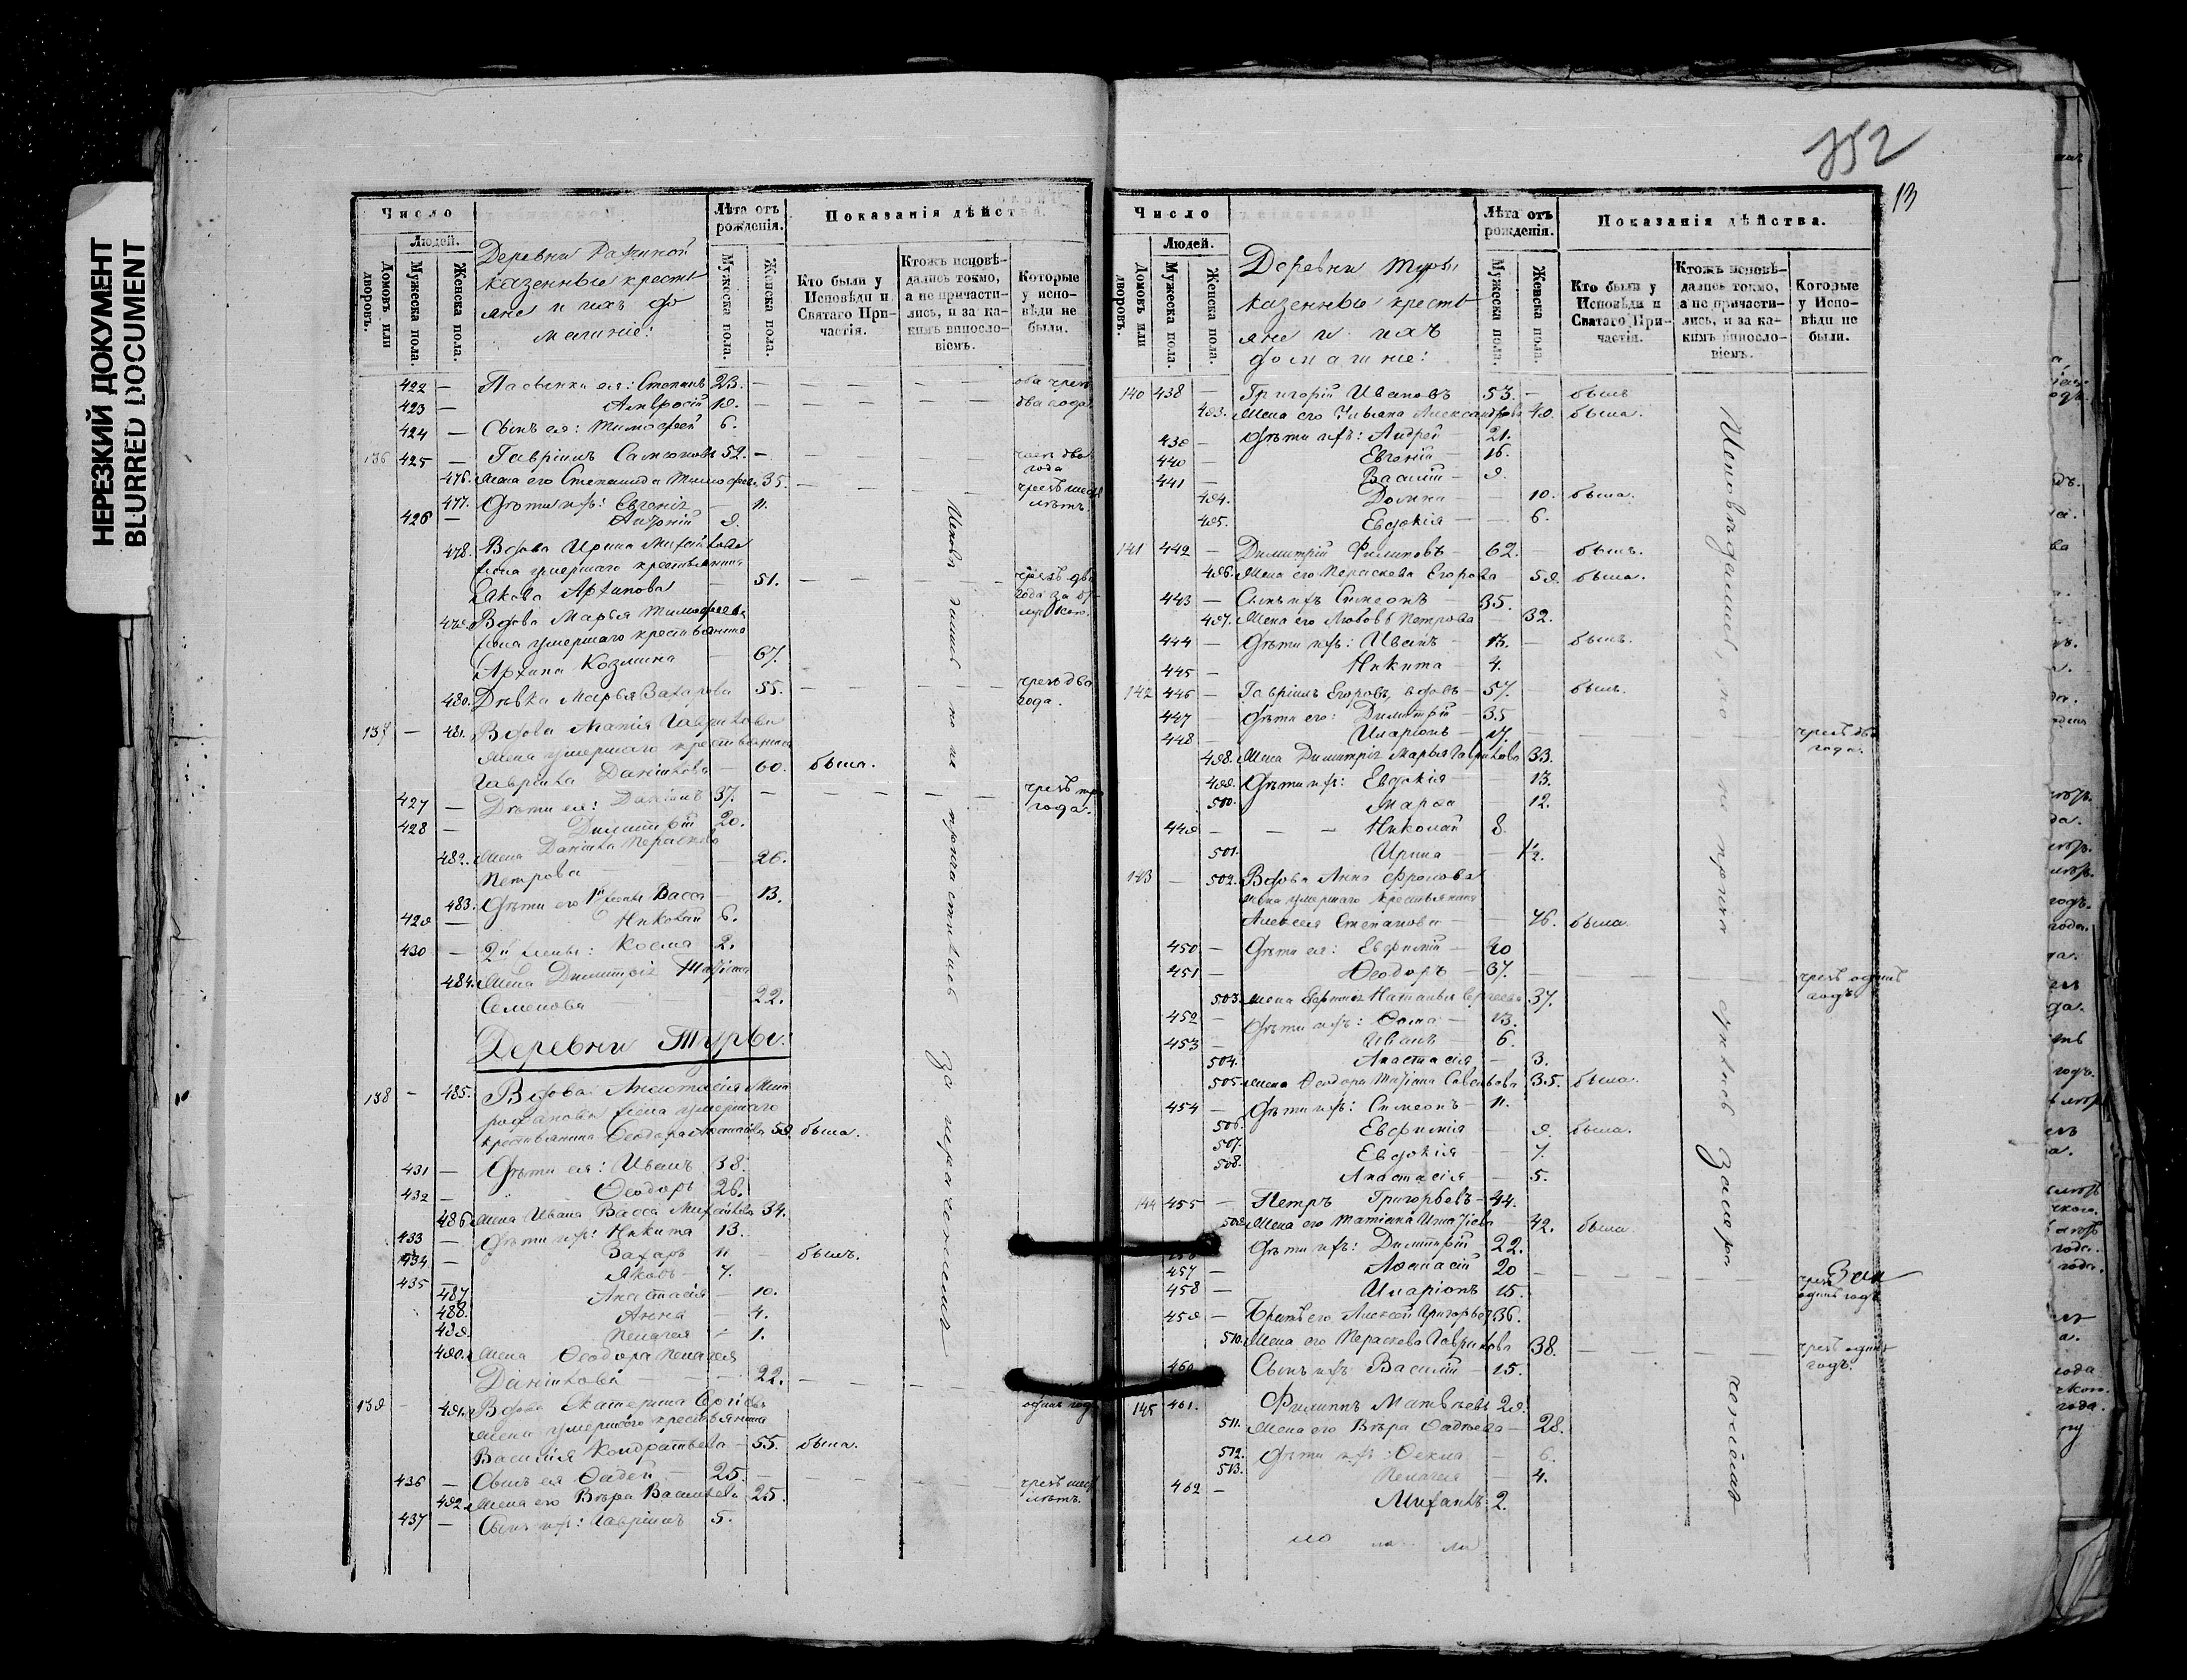 НЕРЕЗКИЙ ДОКУМЕНТ
BLURRED DOCUMENT
Число
Людей.
Домовъ или дворовъ.
Мужеска пола.
Женска пола.
Деревни
казенные кресть
яне и ихъ до
машние:
Лѣта отъ рожденія.
Мужеска пола.
Женска пола.
Показанія дѣйства.
Кто были у Исповѣди и Святаго Причастія.
Ктожъ исповѣдались токмо, а не причастились, и за какимъ винословіемъ.
Которые у исповѣди не были.
422 — Пасынки ея: Степанъ 23. —
423 — Амвросій 19. — два года
424 — Сынъ ея: Тимофей 6.
136 425 — Гавріилъ Самсоновъ 52. — года
476. Жена его Степанида Тимофеева 35. —
477. Дѣти ихъ: Евгенія — 11. лѣтъ.
426 — Андрей 9.
478. Вдова Ирина Михайлова
жена умершаго крестьянина
Іакова Архипова — 51. — чрезъ два
479. Вдова Марья Тимофеева
жена умершаго крестьянина
Архипа Козмина — 67.
480. Дѣвка Марья Захарова 55. — чрезъ два
года.
137 — 481. Вдова Гаврилова
жена умершаго крестьянина
Гавріила Данилова — 60. была.
427 — Дѣти ея: Даніилъ 37. — чрезъ
года.
428 — Димитрій 20.
482. Жена Даніила Параскева
Петрова — 26.
483. Дѣти его 1й жены Васса — 13.
429 — Николай 6.
430 — 2й жены: Косма 2.
484. Жена Димитрія
Семенова — 22.
Деревни Туры.
138 — 485. Вдова Анастасія Мит
рофанова жена умершаго
крестьянина Ѳеодора 59. была.
431 — Дѣти ея: Иванъ 38.
432 — Ѳеодоръ 26.
486. Жена Ивана Васса Михайлова 34.
433 — Дѣти ихъ: Никита 13.
434 — Захаръ 11 — былъ.
435 — Яковъ 7.
487 Анастасія — 10.
488. Анна — 4.
489. Пелагея — 1.
490. Жена Ѳеодора Пелагея
Данилова — 22.
139 — 491. Вдова Екатерина Сергіева
жена умершаго крестьянина
Василія Кондратьева — 55. была.
436 — Сынъ ея Фадей — 25. —
лѣтъ.
492. Жена его Вѣра Васильева 25.
437 — Сынъ ихъ: Гавріилъ 5.
но не причастились за нераченіемъ
352
13
Число
Людей.
Домовъ или дворовъ.
Мужеска пола.
Женска пола.
Деревни Туры
казенные кресть
яне и ихъ
домашние:
Лѣта отъ рожденія.
Мужеска пола.
Женска пола.
Показанія дѣйства.
Кто были у Исповѣди и Святаго Причастія.
Ктожъ исповѣдались токмо, а не причастились, и за какимъ винословіемъ.
Которые у Исповѣди не были.
140 438 — Григорій Ивановъ 53. — былъ
493. Жена его Александрова 49. была.
439 — Дѣти ихъ: Андрей — 21.
440 — Евгеній — 16.
441 — Василій — 9.
494. Домна — 10. была.
495. Евдокія — 6.
141 442 — Димитрій Филиповъ — 62. — былъ.
496. Жена его Параскева Егорова — 59. была.
443 — Сынъ ихъ Симеонъ — 35.
497. Жена его Любовь Петрова — 32.
444 — Дѣти ихъ: Иванъ — 13. — былъ.
445 — Никита — 4.
142 446 — Гавріилъ Егоровъ, вдовъ — 57. — былъ.
447 — Дѣти его: Димитрій — 35
448 — Иларіонъ — 17. — чрезъ два
года.
498. Жена Димитрія Марья Гаврилова 33.
499. Дѣти ихъ: Евдокія — 13.
500. Марѳа — 12.
449 — Николай 8.
501. Ирина — 1/2.
143 — 502. Вдова Анна Фролова
жена умершаго крестьянина
Алексея Степанова — 76. была.
450 — Дѣти ея: Евфимій — 40
451 — Ѳеодоръ — 37. — чрезъ одинъ
годъ.
503. Жена Евфимія Наталья Сергеева 37.
452 — Дѣти ихъ: Ѳома — 13.
453 — Иванъ — 6.
504. Анастасія — 3.
505. Жена Ѳеодора Савельева 35. была.
454 — Дѣти ихъ: Симеонъ — 11.
506. Евфимія — 9. была.
507. Евдокія — 7.
508. Анастасія — 5.
144 455 — Петръ Григорьевъ — 44.
509. Жена его Татіана — 42. была.
Дѣти ихъ: Димитрій 22.
457 — 20 — чрезъ
одинъ годъ
458 — Иларіонъ 15.
459 — Братъ его Алексей Григорьевъ 36.
510. Жена его Параскева Гаврилова 38. — чрезъ одинъ
годъ.
460 Сынъ ихъ Василій — 15.
145 461. Филиппъ Матвѣевъ 29.
511. Жена его Вѣра Фадѣева — 28.
512. Дѣти ихъ: Ѳекла — 6.
513. Пелагея — 4.
462 — Михаилъ 2.
Исповѣдались, но не прича стились за нера ченіемъ